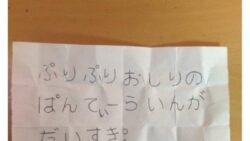 ぷりぷりおしりの
ぱんてぃーらいんが
だいすき。